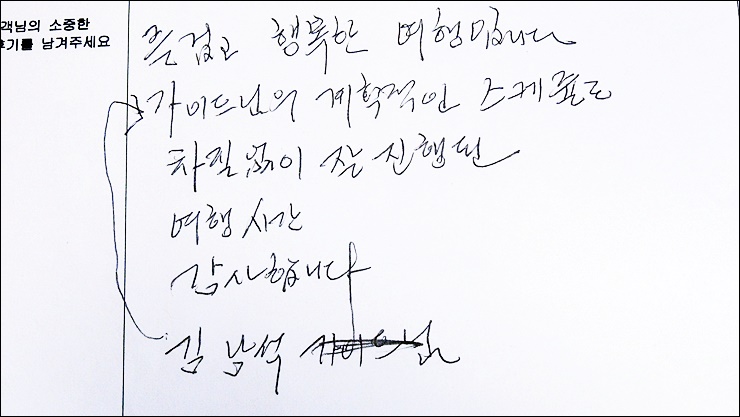 객님의 소중한
후기를 남겨주세요
즐겁고 행복한 여행입니다
가이드님의 계획적인 스케쥴로
차질없이 잘 진행된
여행시간
감사합니다
김남석 가이드님